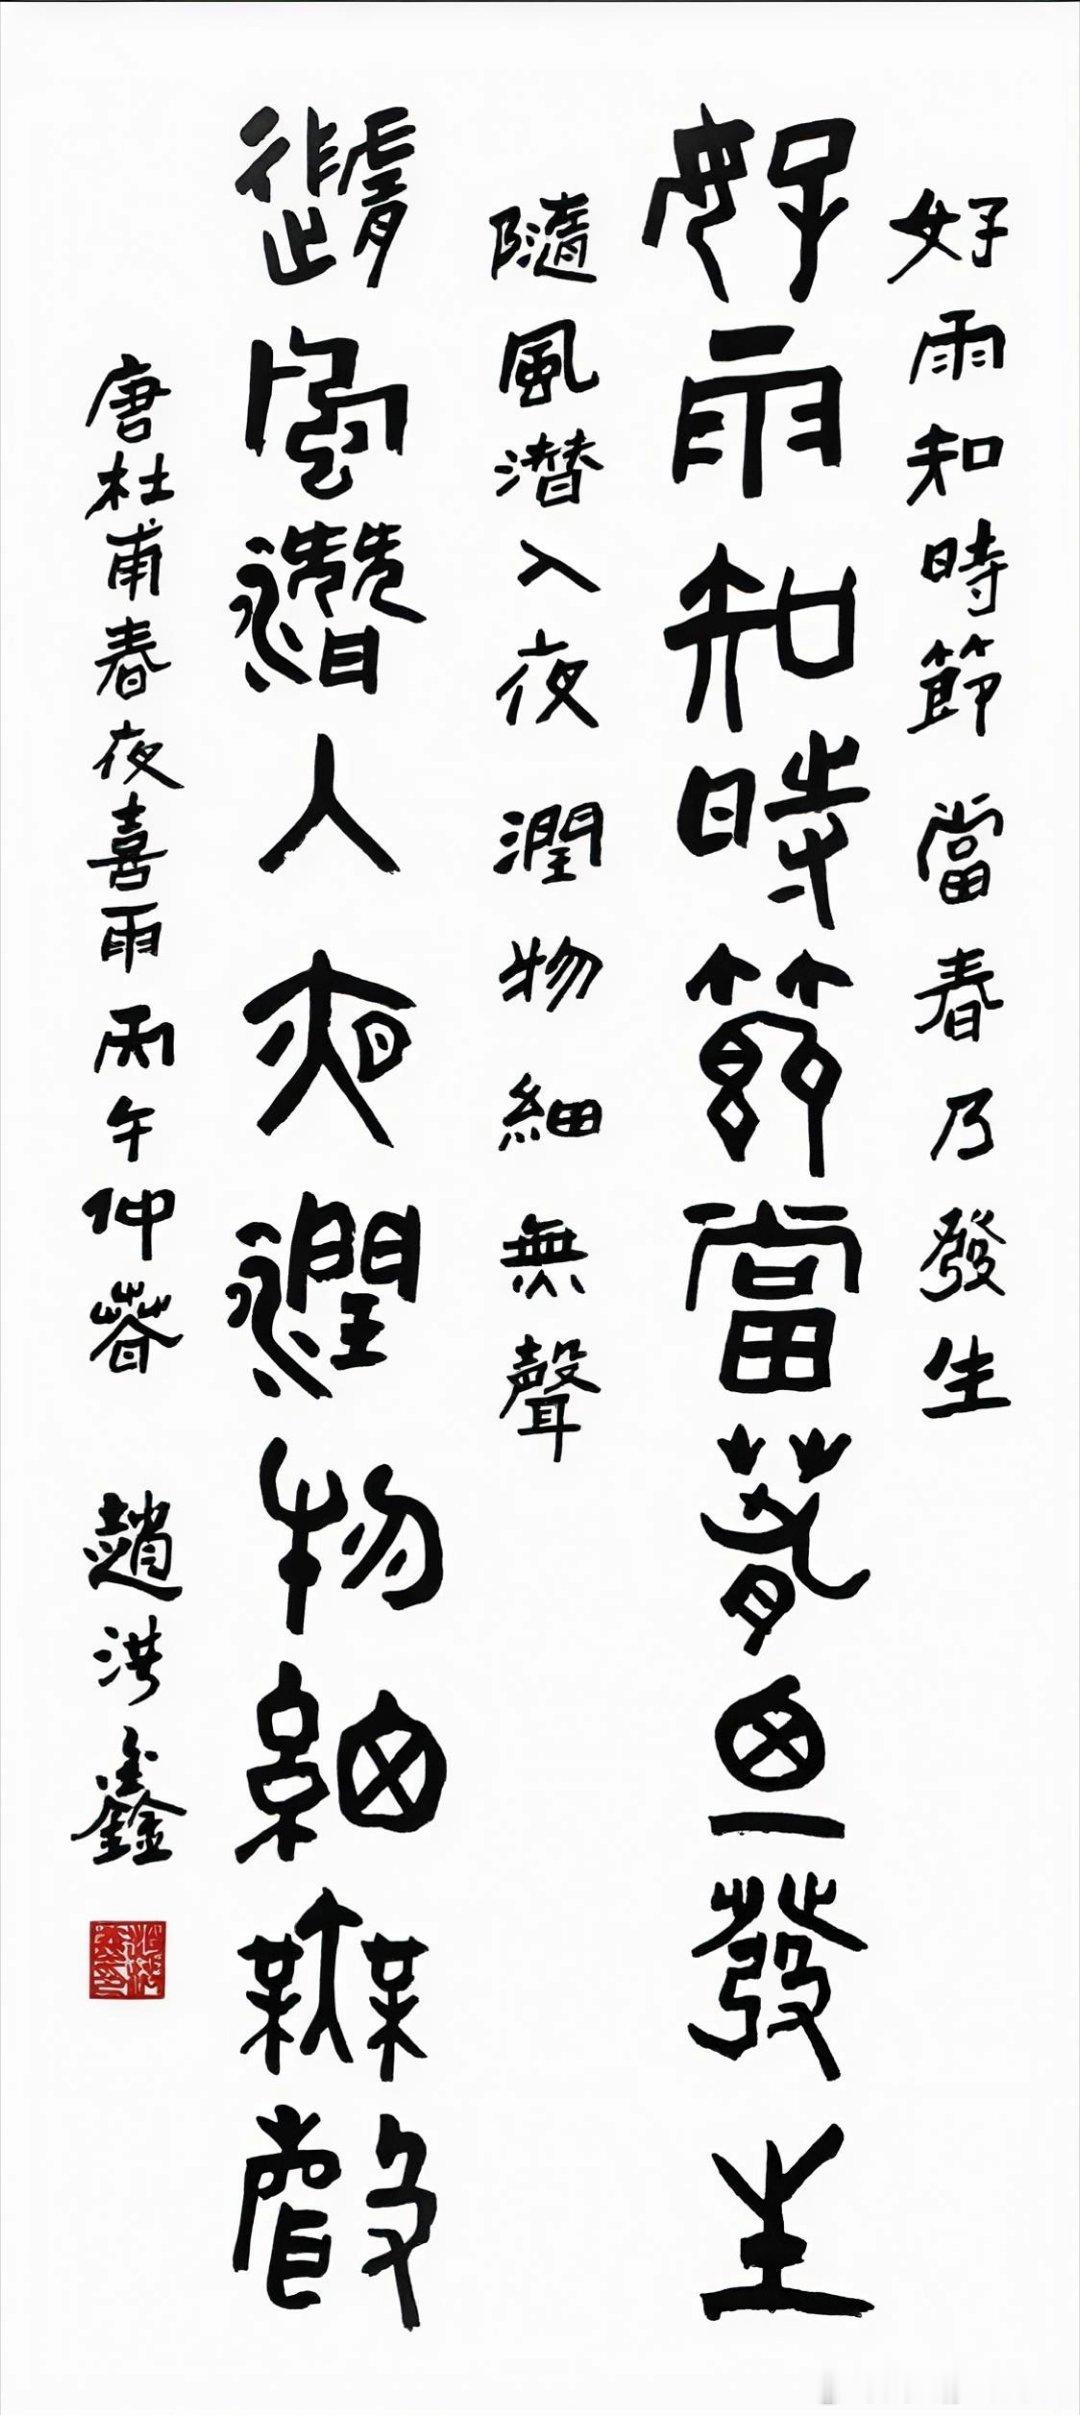 好雨知時節當春乃發生
好雨知時節當春乃發生
隨風潜入夜潤物細無聲
隨風潛入夜潤物細無聲
唐杜甫春夜喜雨丙午仲春 趙洪鑫